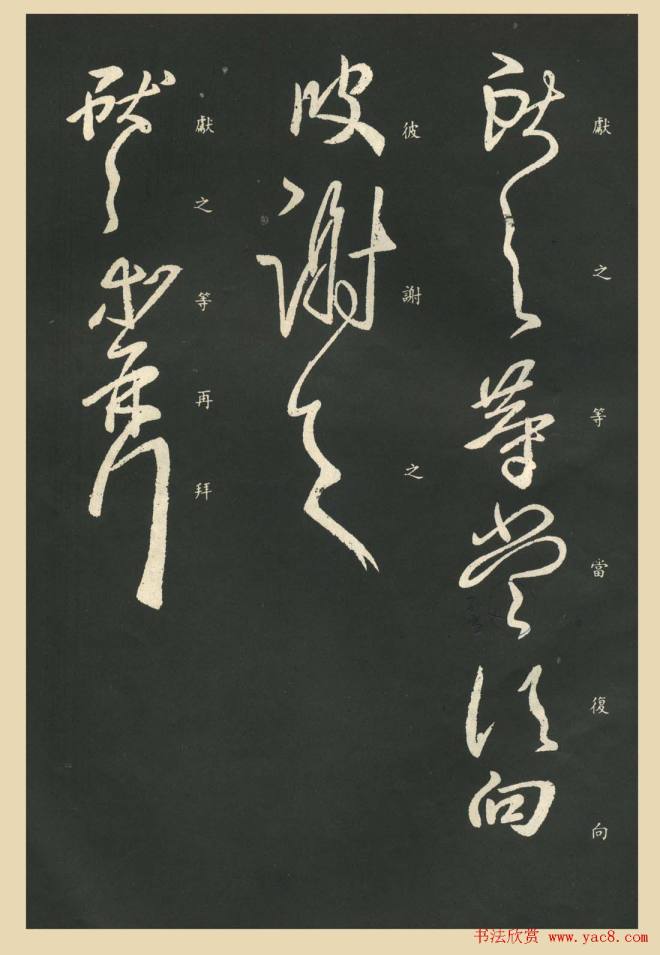 獻之等當復向
彼謝之
獻之等再拜
书法欣赏 www.yac8.com